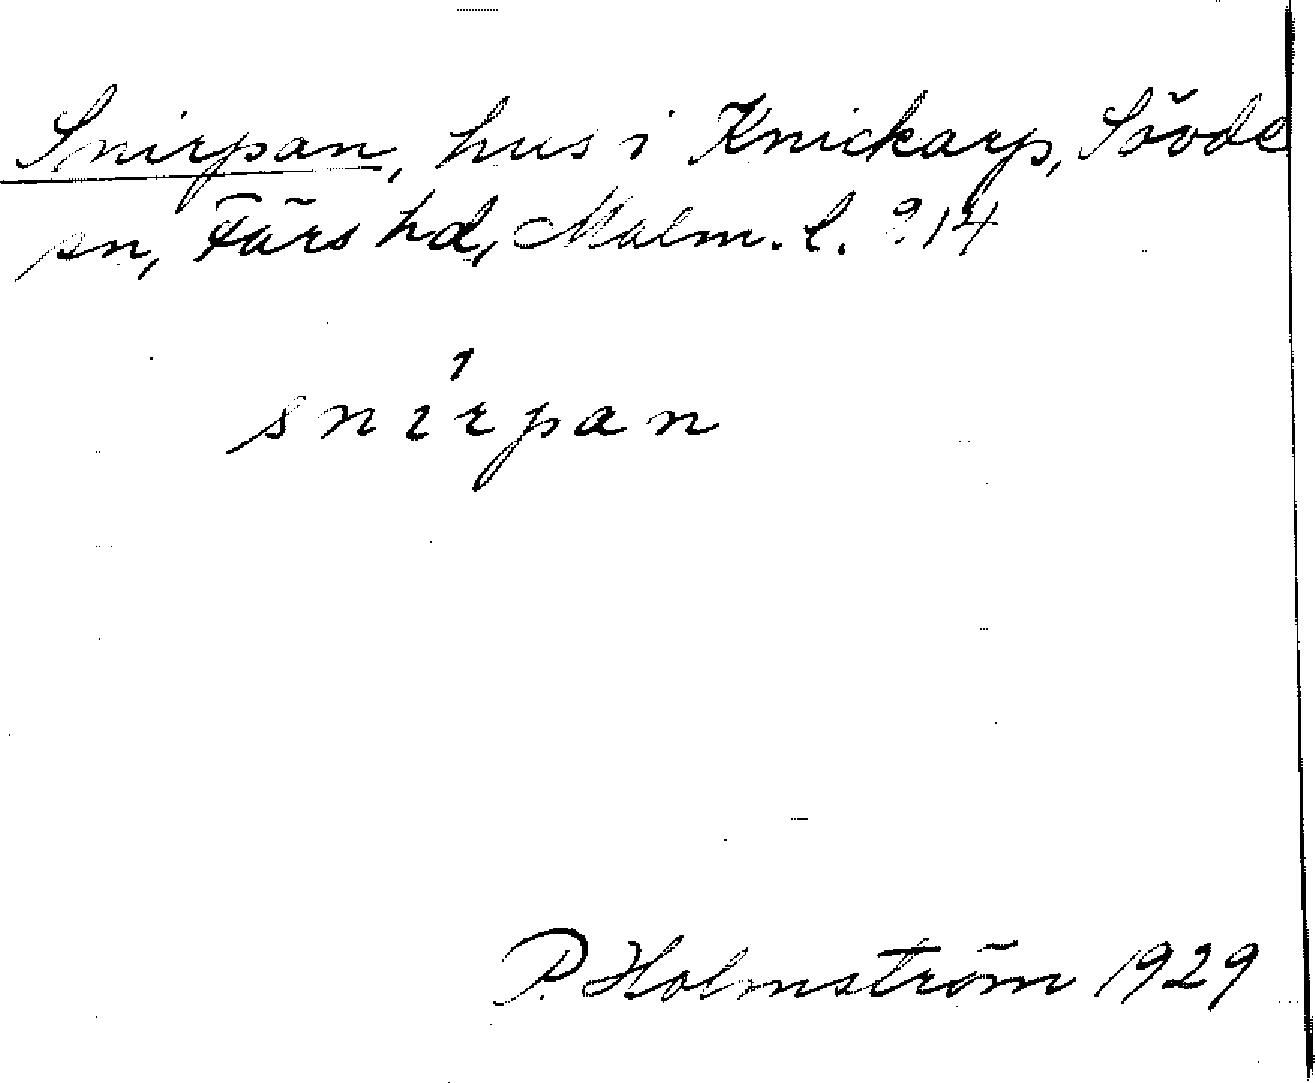 Snirpan, hus i Knickarp, Sövde
sn, Färs hd, Malm. l. 214
snirpan
P. Holmström 1929